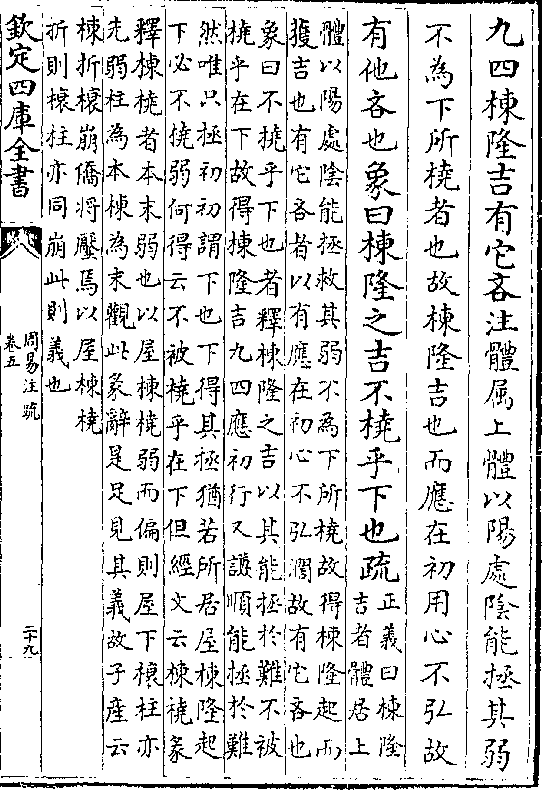 九四棟隆吉有它吝注體属上體以陽處陰能拯其弱
不為下所橈者也故棟隆吉也而應在初用心不弘故
有他吝也象曰棟隆之吉不橈乎下也疏
正義曰棟隆
吉者體居上
體以陽處陰能拯救其弱不為下所橈故得棟隆起而
獲吉也有它吝者以有應在初心不弘濶故有它吝也
象曰不橈乎下也者釋棟隆之吉以其能拯於難不被
橈乎在下故得棟隆吉九四應初行又謙順能拯於難
然唯只拯初初謂下也下得其拯猶若所居屋棟隆起
下必不橈弱何得云不被橈乎在下但經文云棟橈彖
釋棟橈者本末弱也以屋棟橈弱而偏則屋下榱柱亦
先弱柱為本棟為末觀此彖辭是足見其義故子產云
棟折榱崩僑將壓焉以屋棟橈
折則榱柱亦同崩此則義也
欽定四庫全書
周易注疏
卷五
二十九